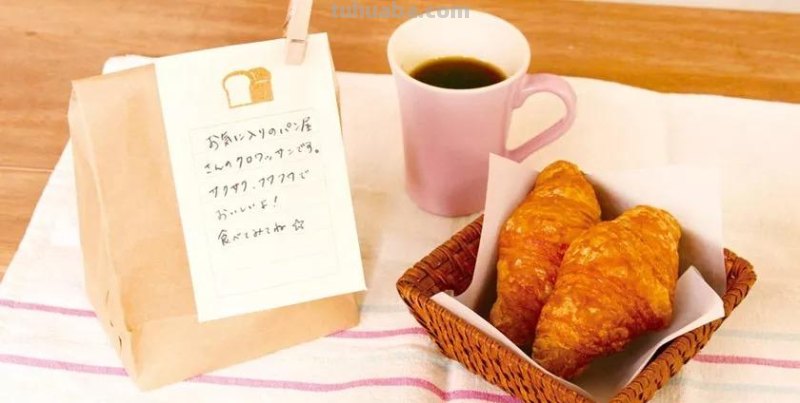 tuhuaba.com
お気に入りのパン屋
さんのクロワッサンです。
サクサク、フワフワで
おいしいよ!
食べてみてね☆